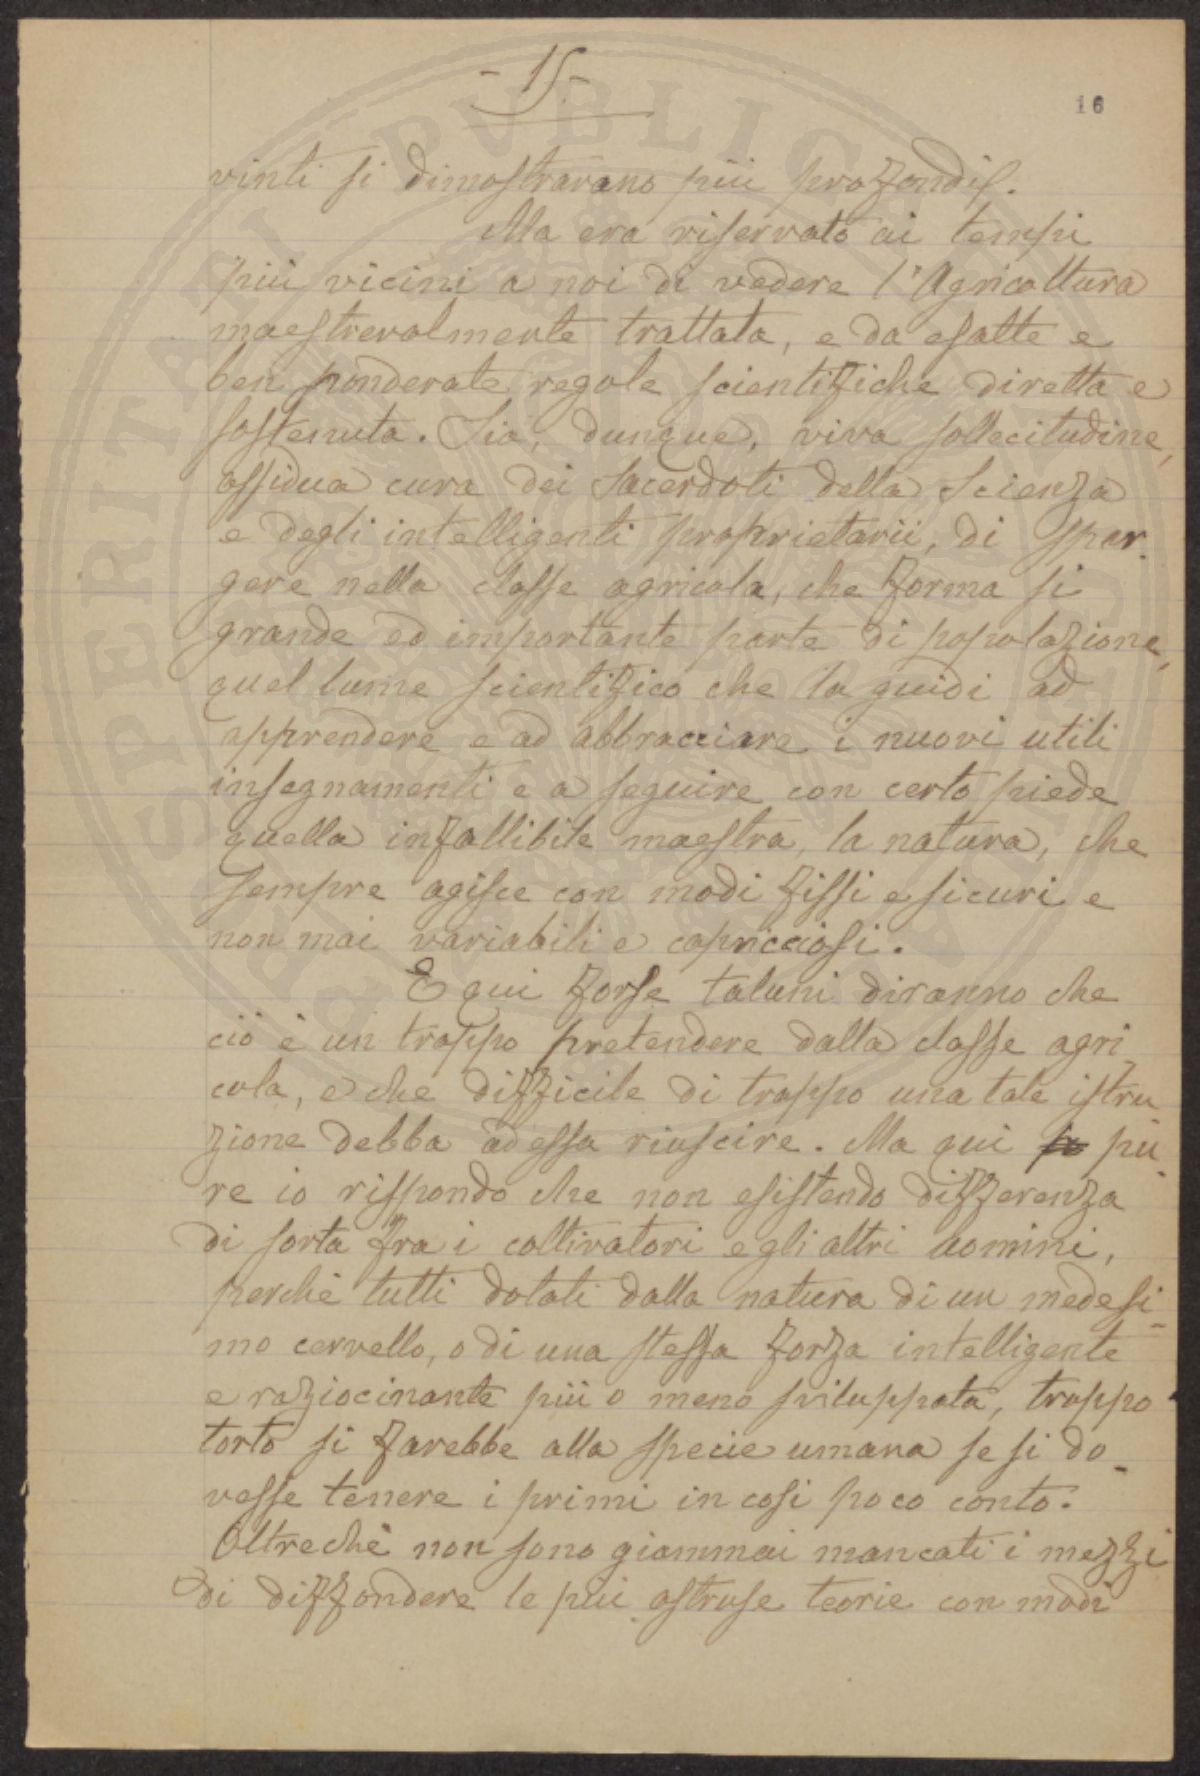 - 15 -
16
vinti si dimostrarano più profondi.
Ma era riservato ai tempi
più vicini a noi di vedere l'Agricoltura
maestrevolmente trattata, e da esatte e
ben ponderate regole scientifiche diretta e
sostenuta. Sia, dunque, viva sollecitudine,
assidua cura dei Sacerdoti della Scienza
e degli intelligenti proprietarii, di spar-
gere nella classe agricola, che forma si
grande ed importante parte di popolazione,
quel lume scientifico che la guidi ad
apprendere e ad abbracciare i nuovi utili
insegnamenti e a seguire con certo piede
quella infallibile maestra, la natura, che
sempre agisce con modi fissi e sicuri e
non mai variabili e capricciosi.
E qui forse taluni diranno che
ciò è un troppo pretendere dalla classe agri-
cola, e che difficile di troppo una tale istru-
zione debba ad essa riuscire. Ma qui pu-
re io rispondo che non esistendo differenza
di sorta fra i coltivatori e gli altri uomini,
perchè tutti dotati dalla natura di un medesi-
mo cervello, o di una stessa forza intelligente
e raziocinante più o meno sviluppata, troppo
torto si farebbe alla specie umana se si do-
vesse tenere i primi in così poco conto.
Oltrechè non sono giammai mancati i mezzi
di diffondere le più astruse teorie con modi
PROSPERITATI PVBLICAE